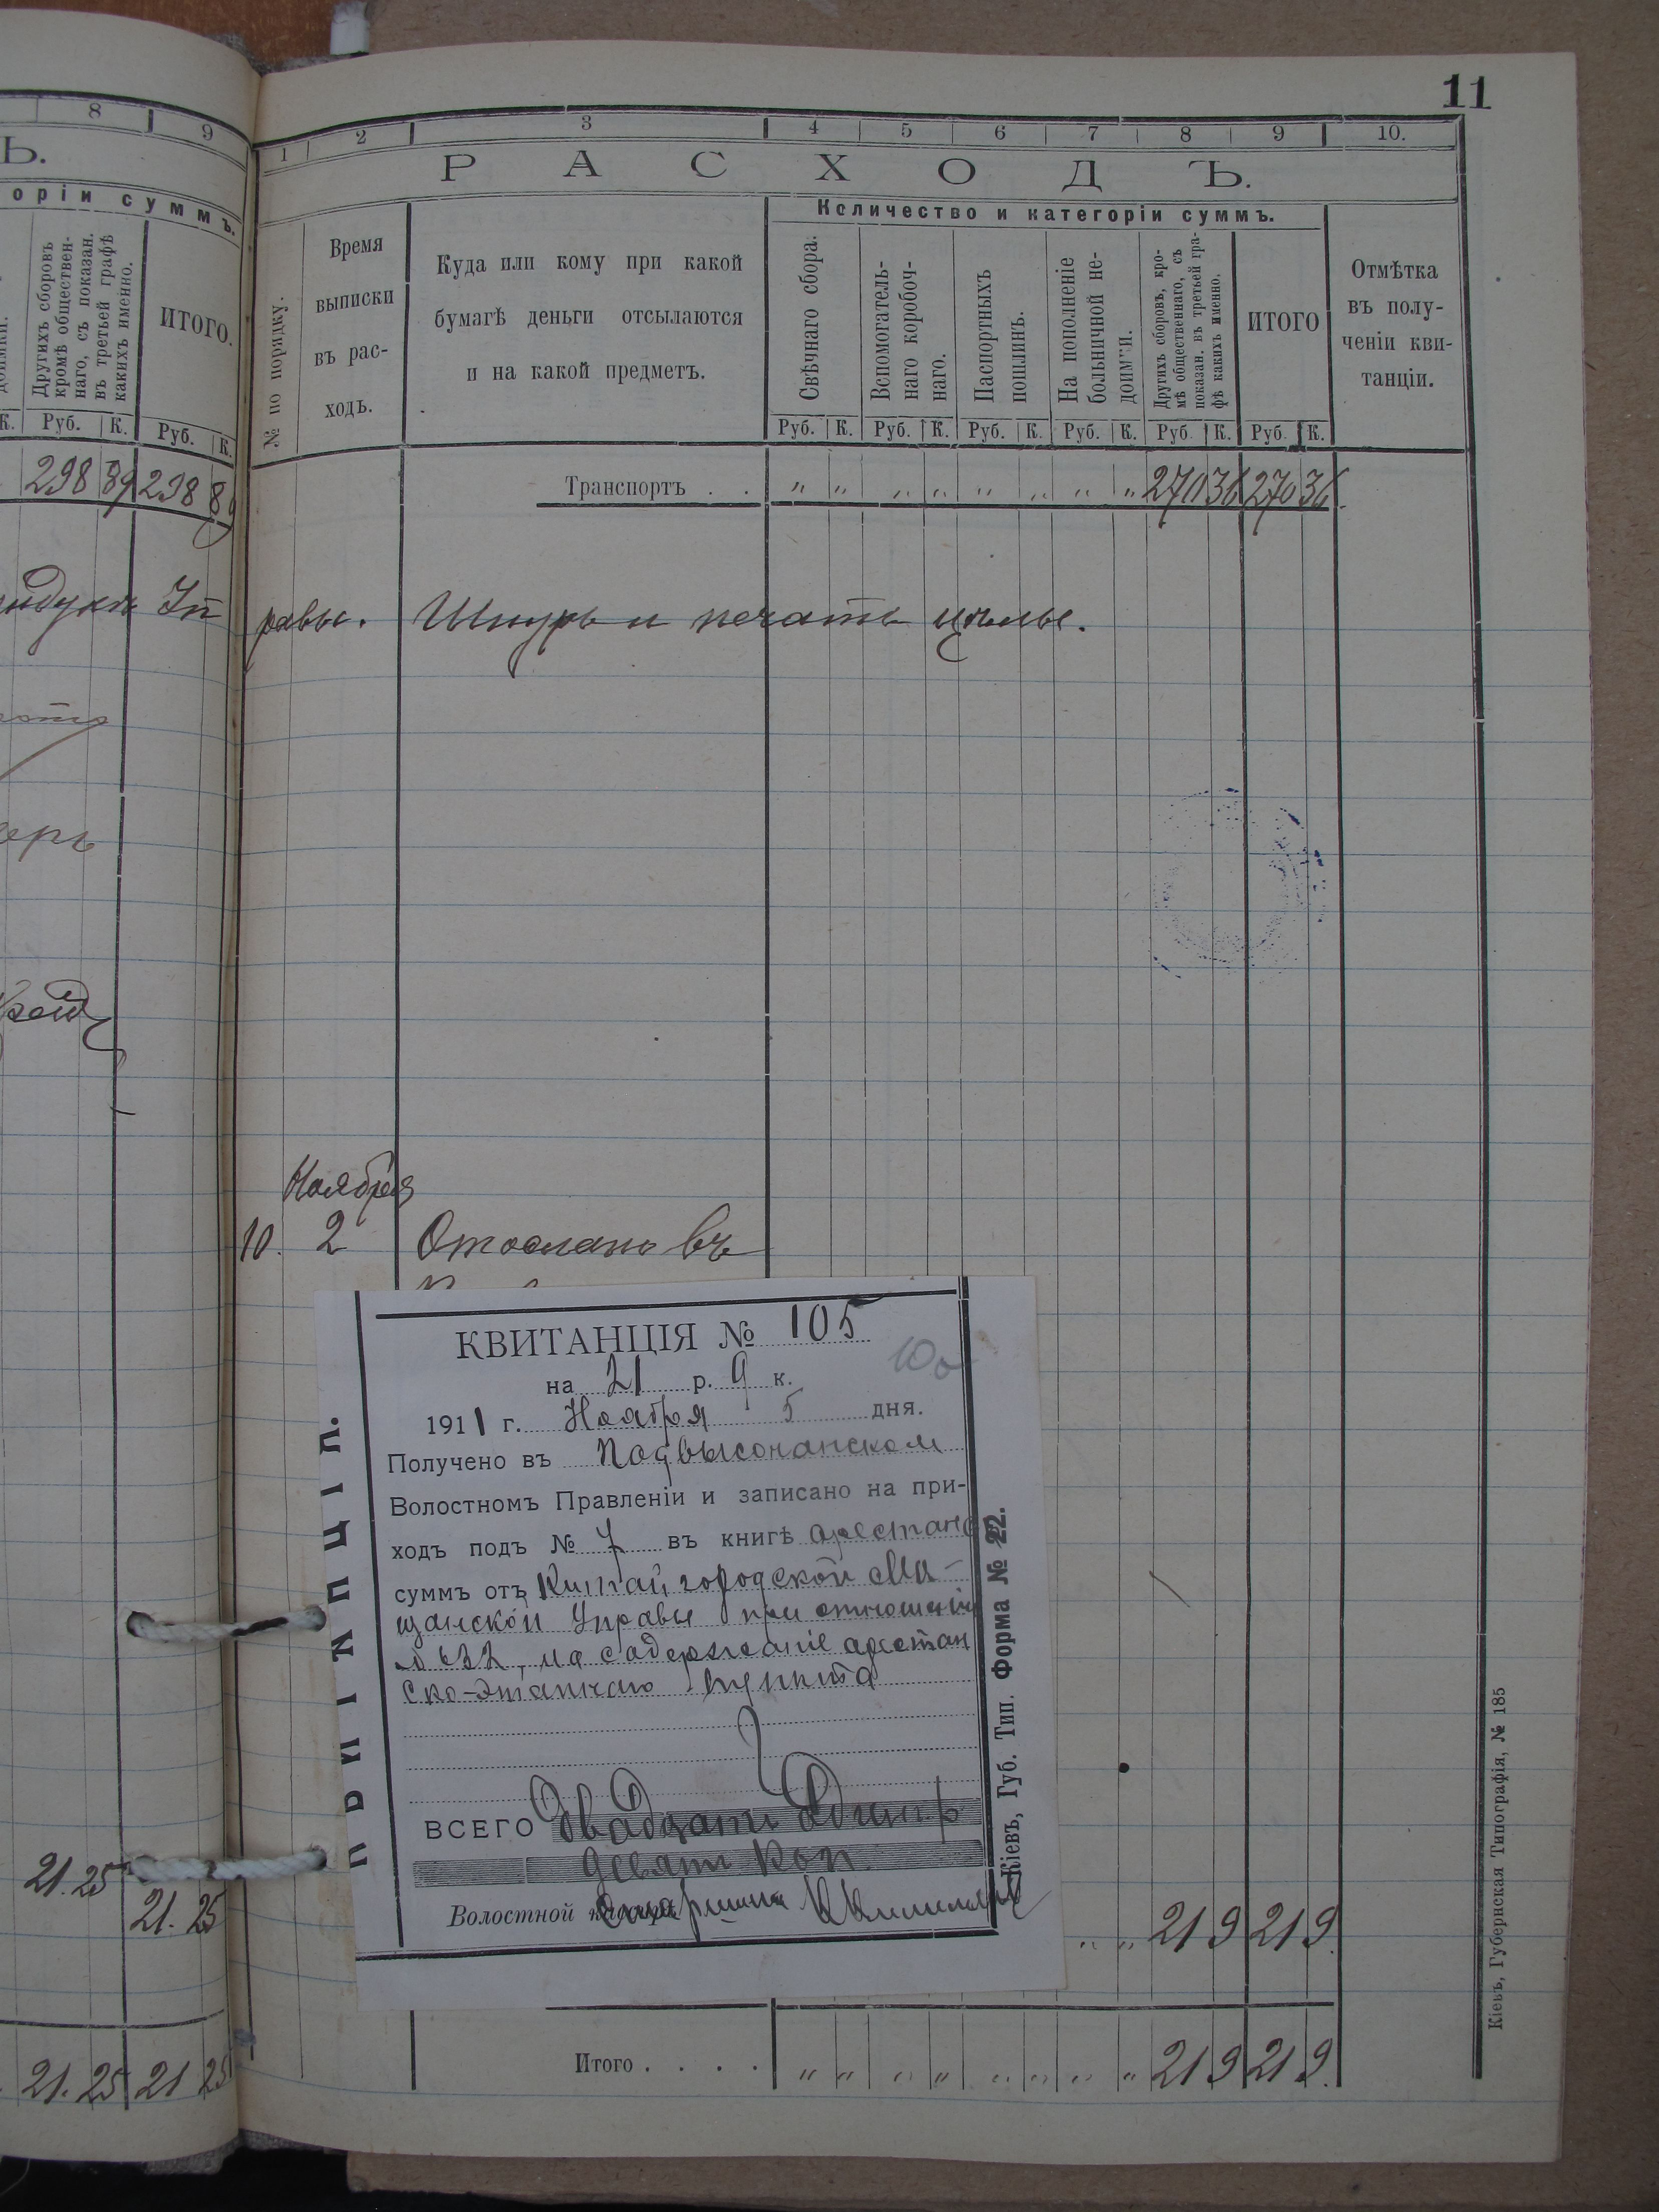 11
8 9
Ъ.
оріи суммъ.
Другихъ сборовъ
кромѣ обществен-
наго, съ показан.
въ третьей графѣ
какихъ именно.
ИТОГО.
К. Руб. К. Руб. К.
298 89 298 89
21.25
21.25
21.25 21 25
1 2 3 4 5 6 7 8 9 10.
РАСХОДЪ.
№ по порядку.
Время
выписки
въ рас-
ходъ.
Куда или кому при какой
бумагѣ деньги отсылаются
и на какой предметъ.
Количество и категоріи суммъ.
Свѣчнаго сбора.
Вспомогатель-
наго коробоч-
наго.
Паспортныхъ
пошлинъ.
На пополненіе
больничной не-
доимки.
Другихъ сборовъ, кро-
мѣ общественнаго, съ
показан. въ третьей гра-
фѣ какихъ именно.
ИТОГО
Отмѣтка
въ полу-
ченіи кви-
танціи.
Руб. К. Руб. К. Руб. К. Руб. К. Руб. К. Руб. К.
Транспортъ . . " " " " " " " " 270 36 270 36
Уп равы. Шнуръ и печать цѣлые.
Ноября
10. 2 Отослано въ
КВИТАНЦІЯ № 105
на 21 р. 9 к.
1911 г. Ноября 5 дня.
Получено въ Подвысочанском
Волостномъ Правленіи и записано на при-
ходъ подъ № 7 въ книгѣ арестанс
суммъ отъ Китайгородской Мѣ-
щанской Управы при отношеніи
№ 632, на содержаніе арестан
ско-этапнаго пункта
ВСЕГО Двадцать Один р
девять Коп.
Волостной Старшина
Кіевъ, Губ. Тип. Форма № 22.
" " 21 9 21 9
Итого . . . . " " " " " " " " 21 9 21 9
Кіевъ, Губернская Типографія, № 185